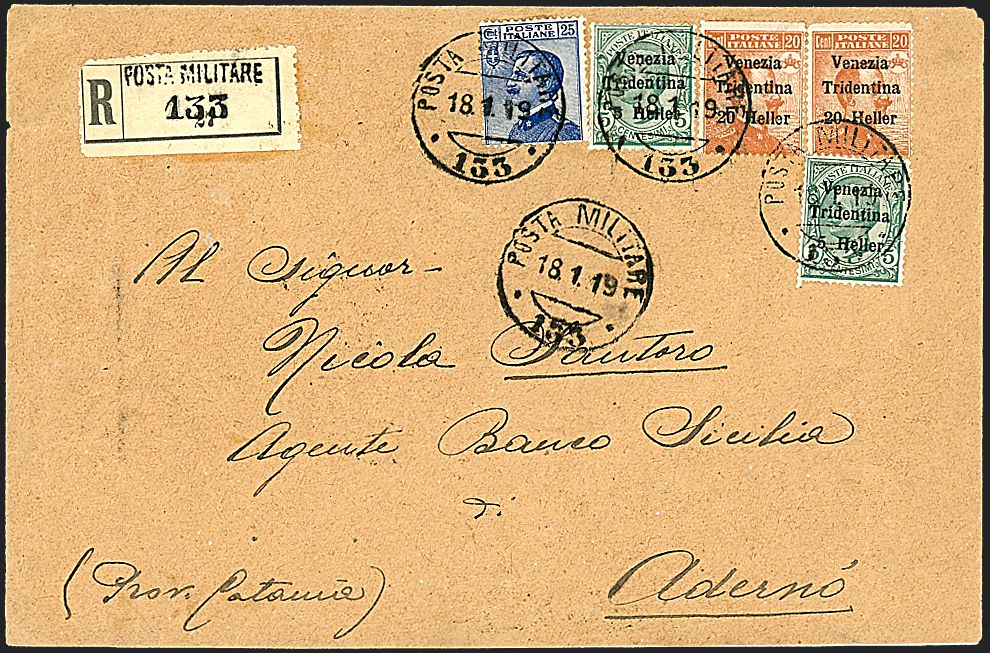 R
POSTA MILITARE
133
27
Cent POSTE ITALIANE 25
POSTE ITALIANE
Venezia
Tridentina
5 Heller
5 CENTESIMI 5
POSTE ITALIANE 20
Venezia
Tridentina
20 Heller
Cent POSTE ITALIANE 20
Venezia
Tridentina
20 Heller
POSTE ITALIANE
Venezia
Tridentina
5 Heller
5 CENTESIMI 5
POSTA MILITARE
18.1.19
133
POSTA MILITARE
18.1.19
133
POSTA MILITARE
POSTA MILITARE
18.1.19
133
Al Signor-
Nicola Santoro
Agente Banco Sicilia
di
Adernó
(Prov. Catania)